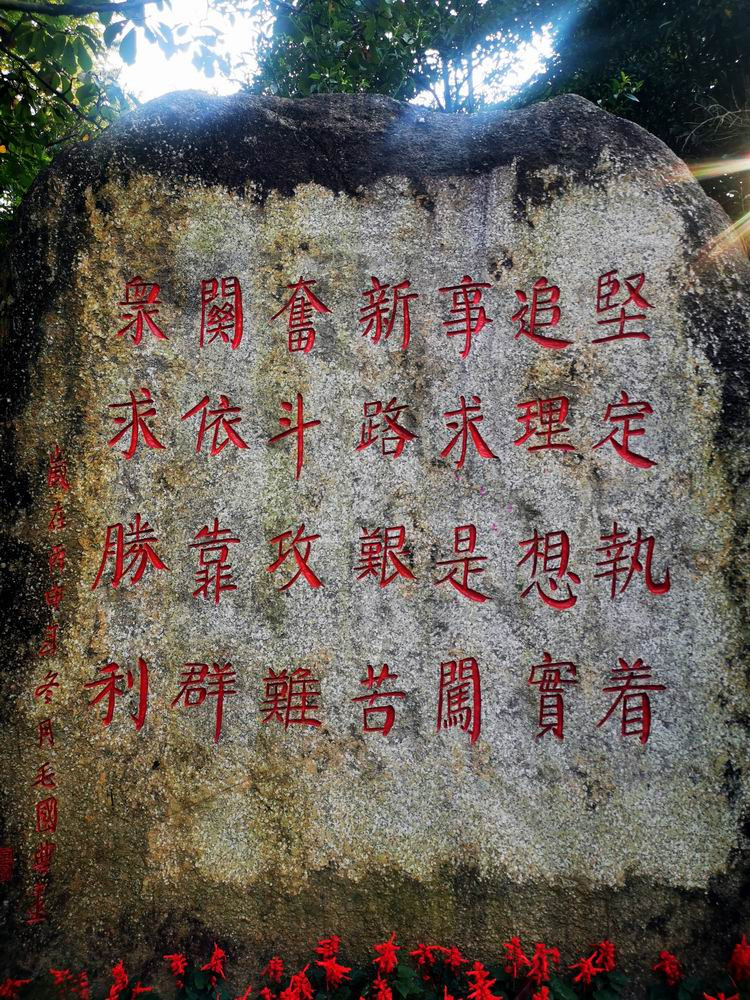 堅定執着
追理想實
事求是闖
新路艱苦
奮斗攻難
關依靠群
衆求勝利
歲在丙申冬月毛國典書